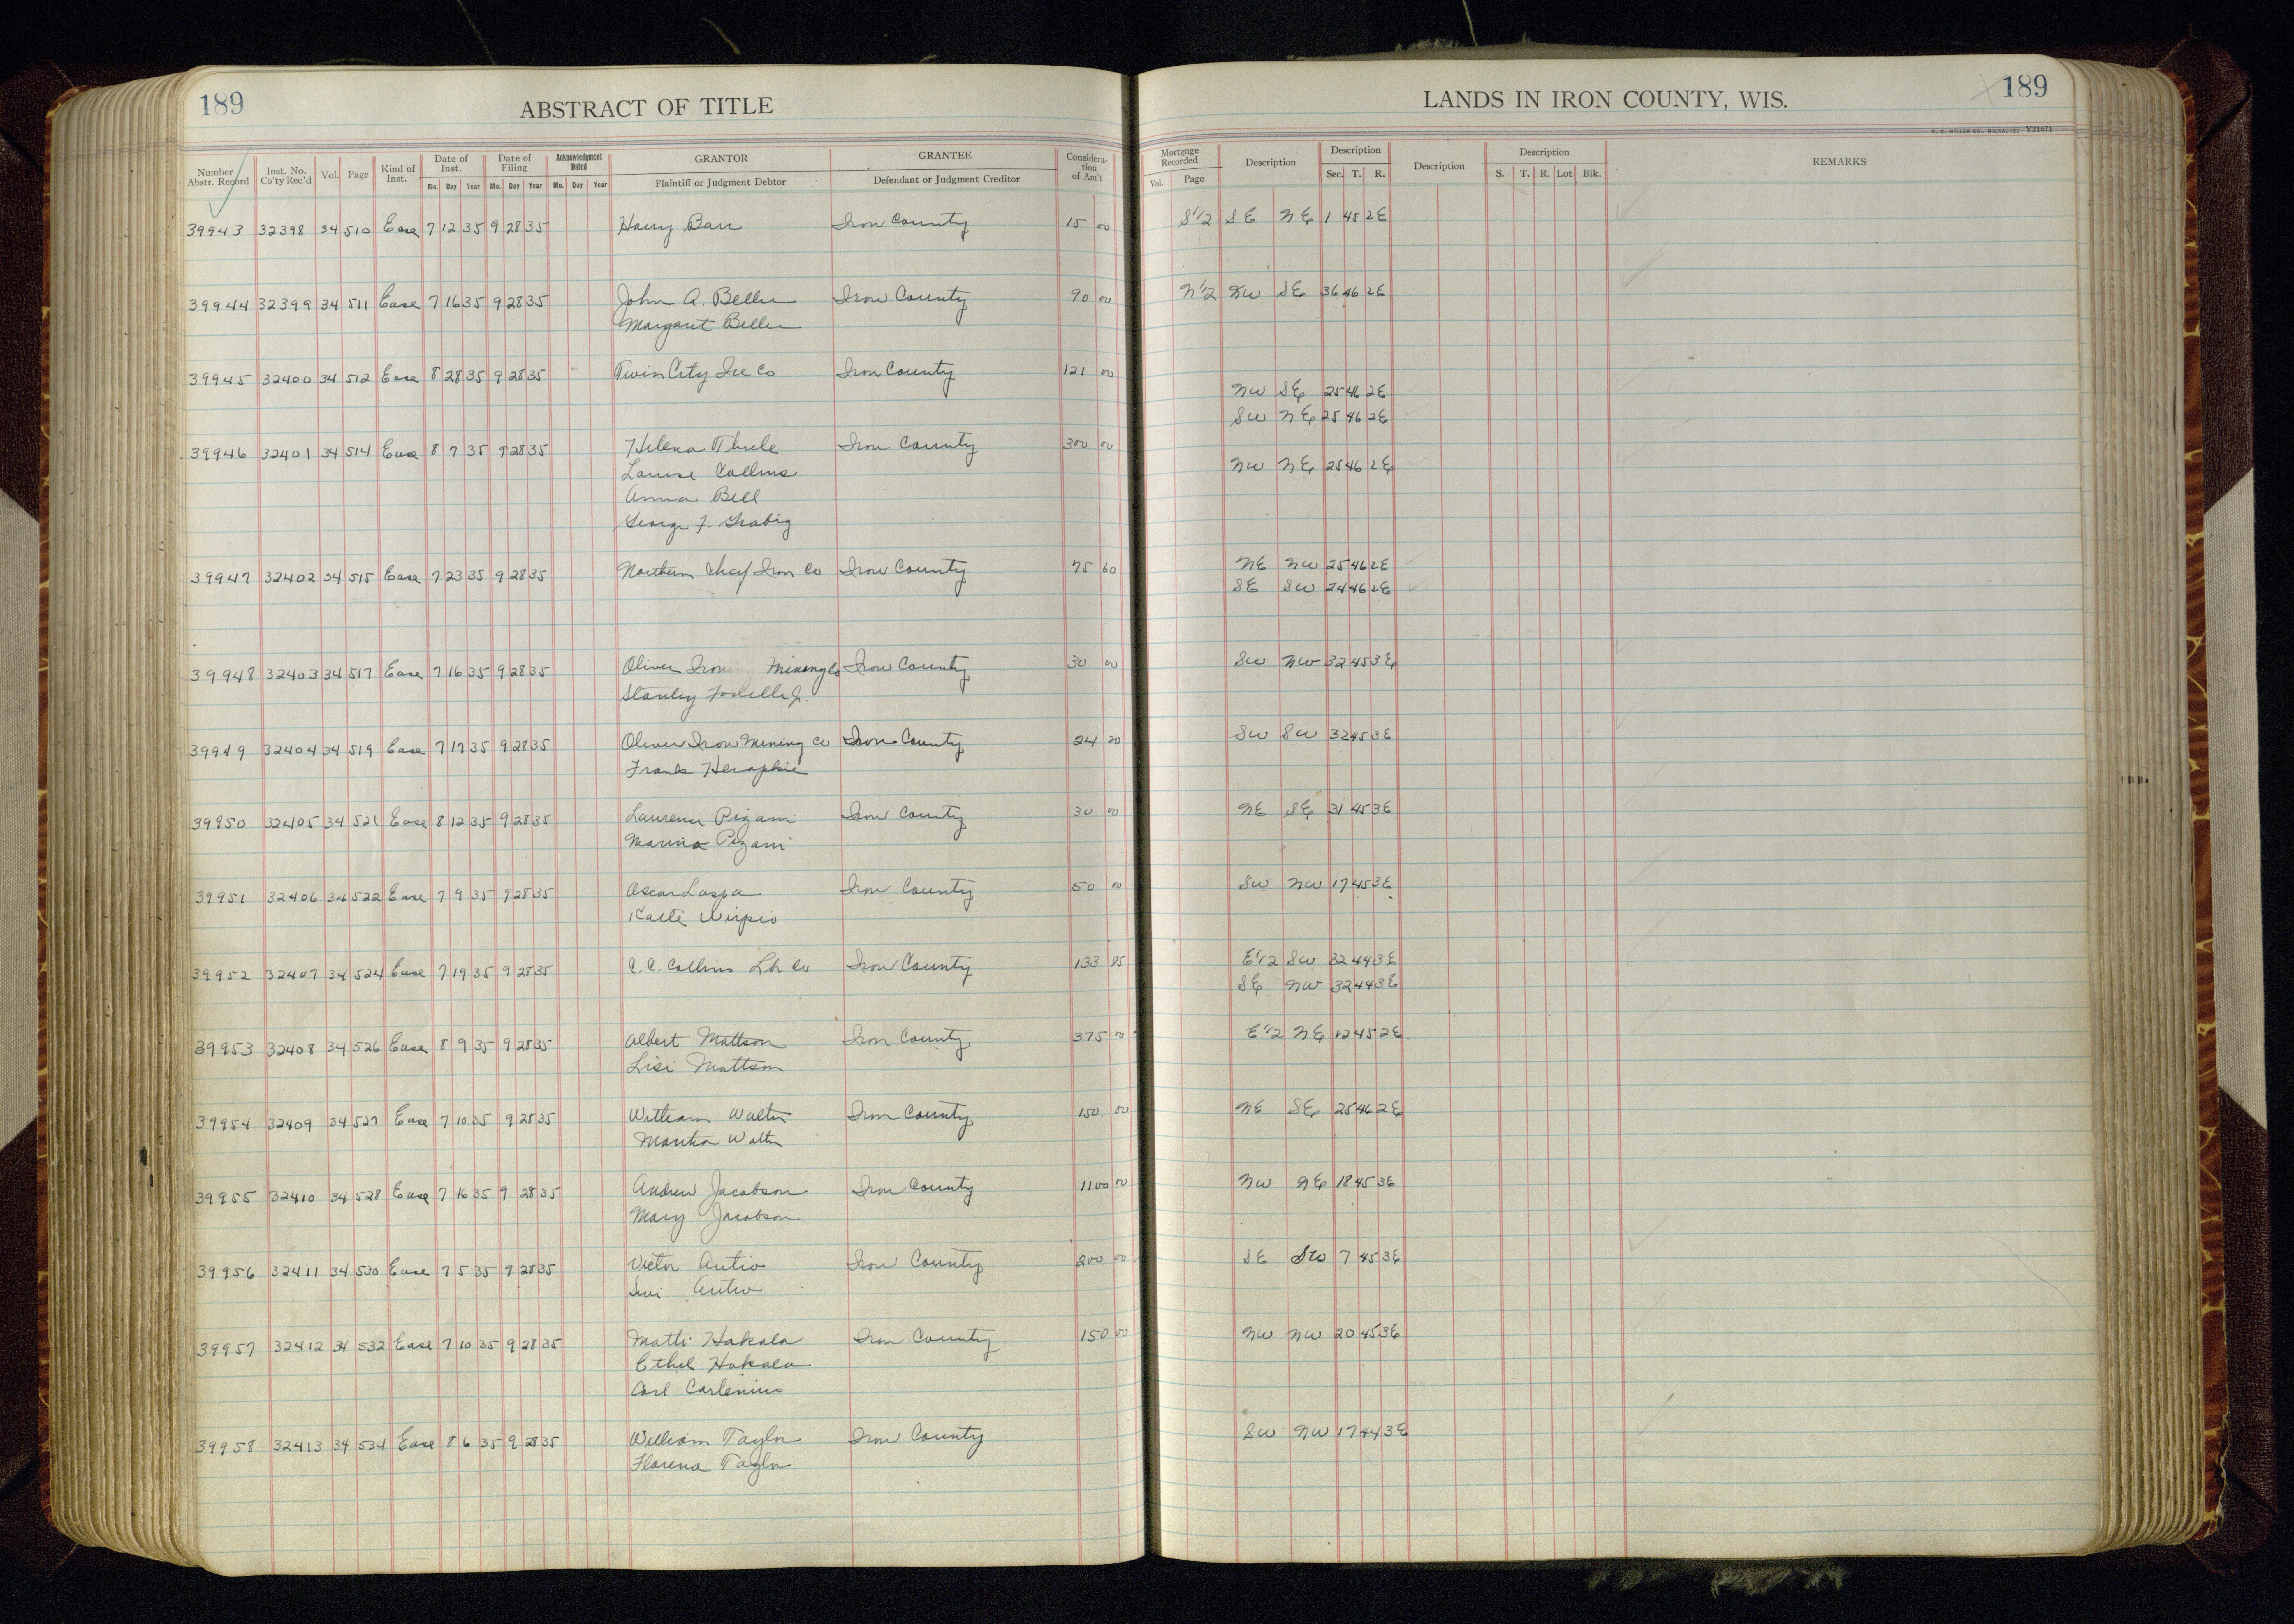 189
ABSTRACT OF TITLE
LANDS IN IRON COUNTY, WIS.
189
H. C. MILLER CO., MILWAUKEE Y21671
Number Abstr. Record Inst. No. Co'ty Rec'd Vol. Page Kind of Inst. Date of Inst. Mo. Day Year Date of Filing Mo. Day Year Acknowledgment Dated Mo. Day Year GRANTOR Plaintiff or Judgment Debtor GRANTEE Defendant or Judgment Creditor Consideration of Am't Mortgage Recorded Vol. Page Description Description Sec. T. R. Description Description S. T. R. Lot Blk. REMARKS
39943 32398 34 510 Ease 7 12 35 9 28 35 Harry Barr Iron County 15 00 S1/2 SE NE 1 45 2E
39944 32399 34 511 Ease 7 16 35 9 28 35 John A. Beller Iron County 90 00 N1/2 NW SE 36 46 2E
Margaret Beller
39945 32400 34 512 Ease 8 28 35 9 28 35 Twin City Ice Co Iron County 121 00
NW SE 25 46 2E
SW NE 25 46 2E
39946 32401 34 514 Ease 8 7 35 9 28 35 Helena Thiele Iron County 300 00
NW NE 25 46 2E
Louise Collins
Anna Bell
George F. Grabig
39947 32402 34 515 Ease 7 23 35 9 28 35 Northern Chief Iron Co Iron County 75 60 NE NW 25 46 2E
SE SW 24 46 2E
39948 32403 34 517 Ease 7 16 35 9 28 35 Oliver Iron Mining Co Iron County 30 00 SW NW 32 45 3E
Stanley Jr.
39949 32404 34 519 Ease 7 17 35 9 28 35 Oliver Iron Mining Co Iron County 24 20 SW SW 32 45 3E
Frank
39950 32405 34 521 Ease 8 12 35 9 28 35 Laurence Pizani Iron County 30 00 NE SE 31 45 3E
Marina Pizani
39951 32406 34 522 Ease 7 9 35 9 28 35 Oscar Iron County 50 00 SW NW 17 45 3E
Kalle Wirpio
39952 32407 34 524 Ease 7 19 35 9 28 35 C. C. Collins Lbr Co Iron County 133 05 E1/2 SW 32 44 3E
SE NW 32 44 3E
39953 32408 34 526 Ease 8 9 35 9 28 35 Albert Mattson Iron County 375 00 E1/2 NE 12 45 2E
Lisi Mattson
39954 32409 34 527 Ease 7 10 35 9 28 35 William Walter Iron County 150 00 NE SE 25 46 2E
Martha Walter
39955 32410 34 528 Ease 7 16 35 9 28 35 Andrew Jacobson Iron County 1100 00 NW NE 18 45 3E
Mary Jacobson
39956 32411 34 530 Ease 7 5 35 9 28 35 Victor Autio Iron County 200 00 SE SW 7 45 3E
Autio
39957 32412 34 532 Ease 7 10 35 9 28 35 Matti Hakala Iron County 150 00 NW NW 20 45 3E
Ethel Hakala
Carl Carlenius
39958 32413 34 534 Ease 8 6 35 9 28 35 William Taylor Iron County SW NW 17 44 3E
Florence Taylor